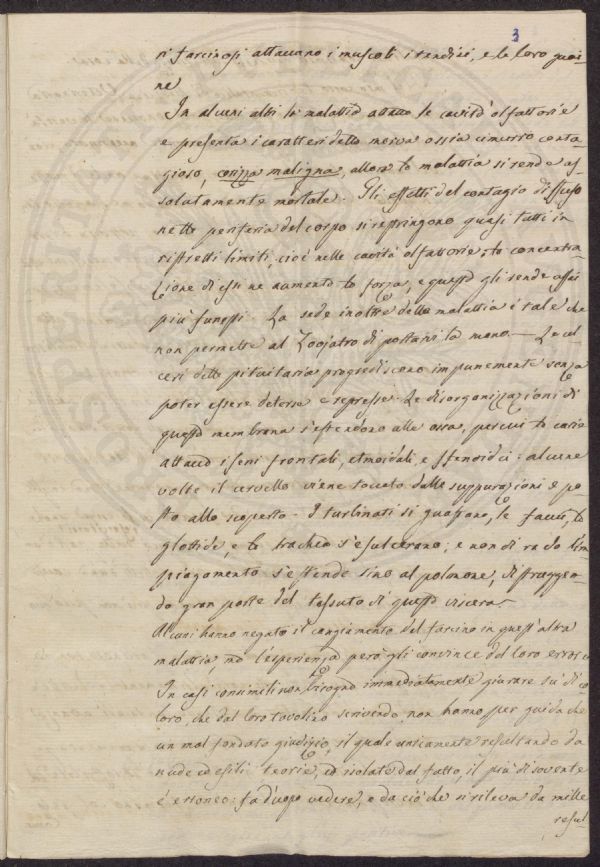 3
ri farcinosi attaccano i muscoli i tendini, e le loro guai-
ne
In alcuni altri la malattia attacca le cavità olfattorie
e presenta i caratteri della morva ossia cimurro conta-
gioso, corizza maligna, allora la malattia si rende as-
solutamente mortale. Gli effetti del contagio diffuso
nella periferia del corpo si restringono quasi tutti in
ristretti limiti, cioè nelle cavità olfattorie; la concentra-
zione di essi ne aumenta la forza, e questo gli rende assai
più funesti. La sede inoltre della malattia è tale che
non permette al Zoojatro di portarvi la mano. — Le ul-
ceri della pituitaria progrediscono impunemente senza
poter essere deterse e represse. Le disorganizzazioni di
questa membrana s'estendono alle ossa, per cui la carie
attacca i seni frontali, etmoidali, e sfenoidei: alcune
volte il cervello viene toccato dalle suppurazioni e po-
sto allo scoperto. I turbinati si guastano, le fauci, la
glottide, e la trachea s'esulcerano; e non di rado l'im-
piagamento s'estende sino al polmone, distruggen-
do gran parte del tessuto di questo viscera.
Alcuni hanno negato il cangiamento del farcino in quest'altra
malattia, ma l'esperienza però gli convince del loro errore
In casi consimili non bisogna immediatamente giurare su di co
loro, che dal loro tavolino scrivendo, non hanno per guida che
un mal fondato giudizio, il quale unicamente resultando da
nude ed esili teorie, ed isolate dal fatto, il più di sovente
è erroneo: fa d'uopo vedere, e da ciò che si rileva da mille
resul-